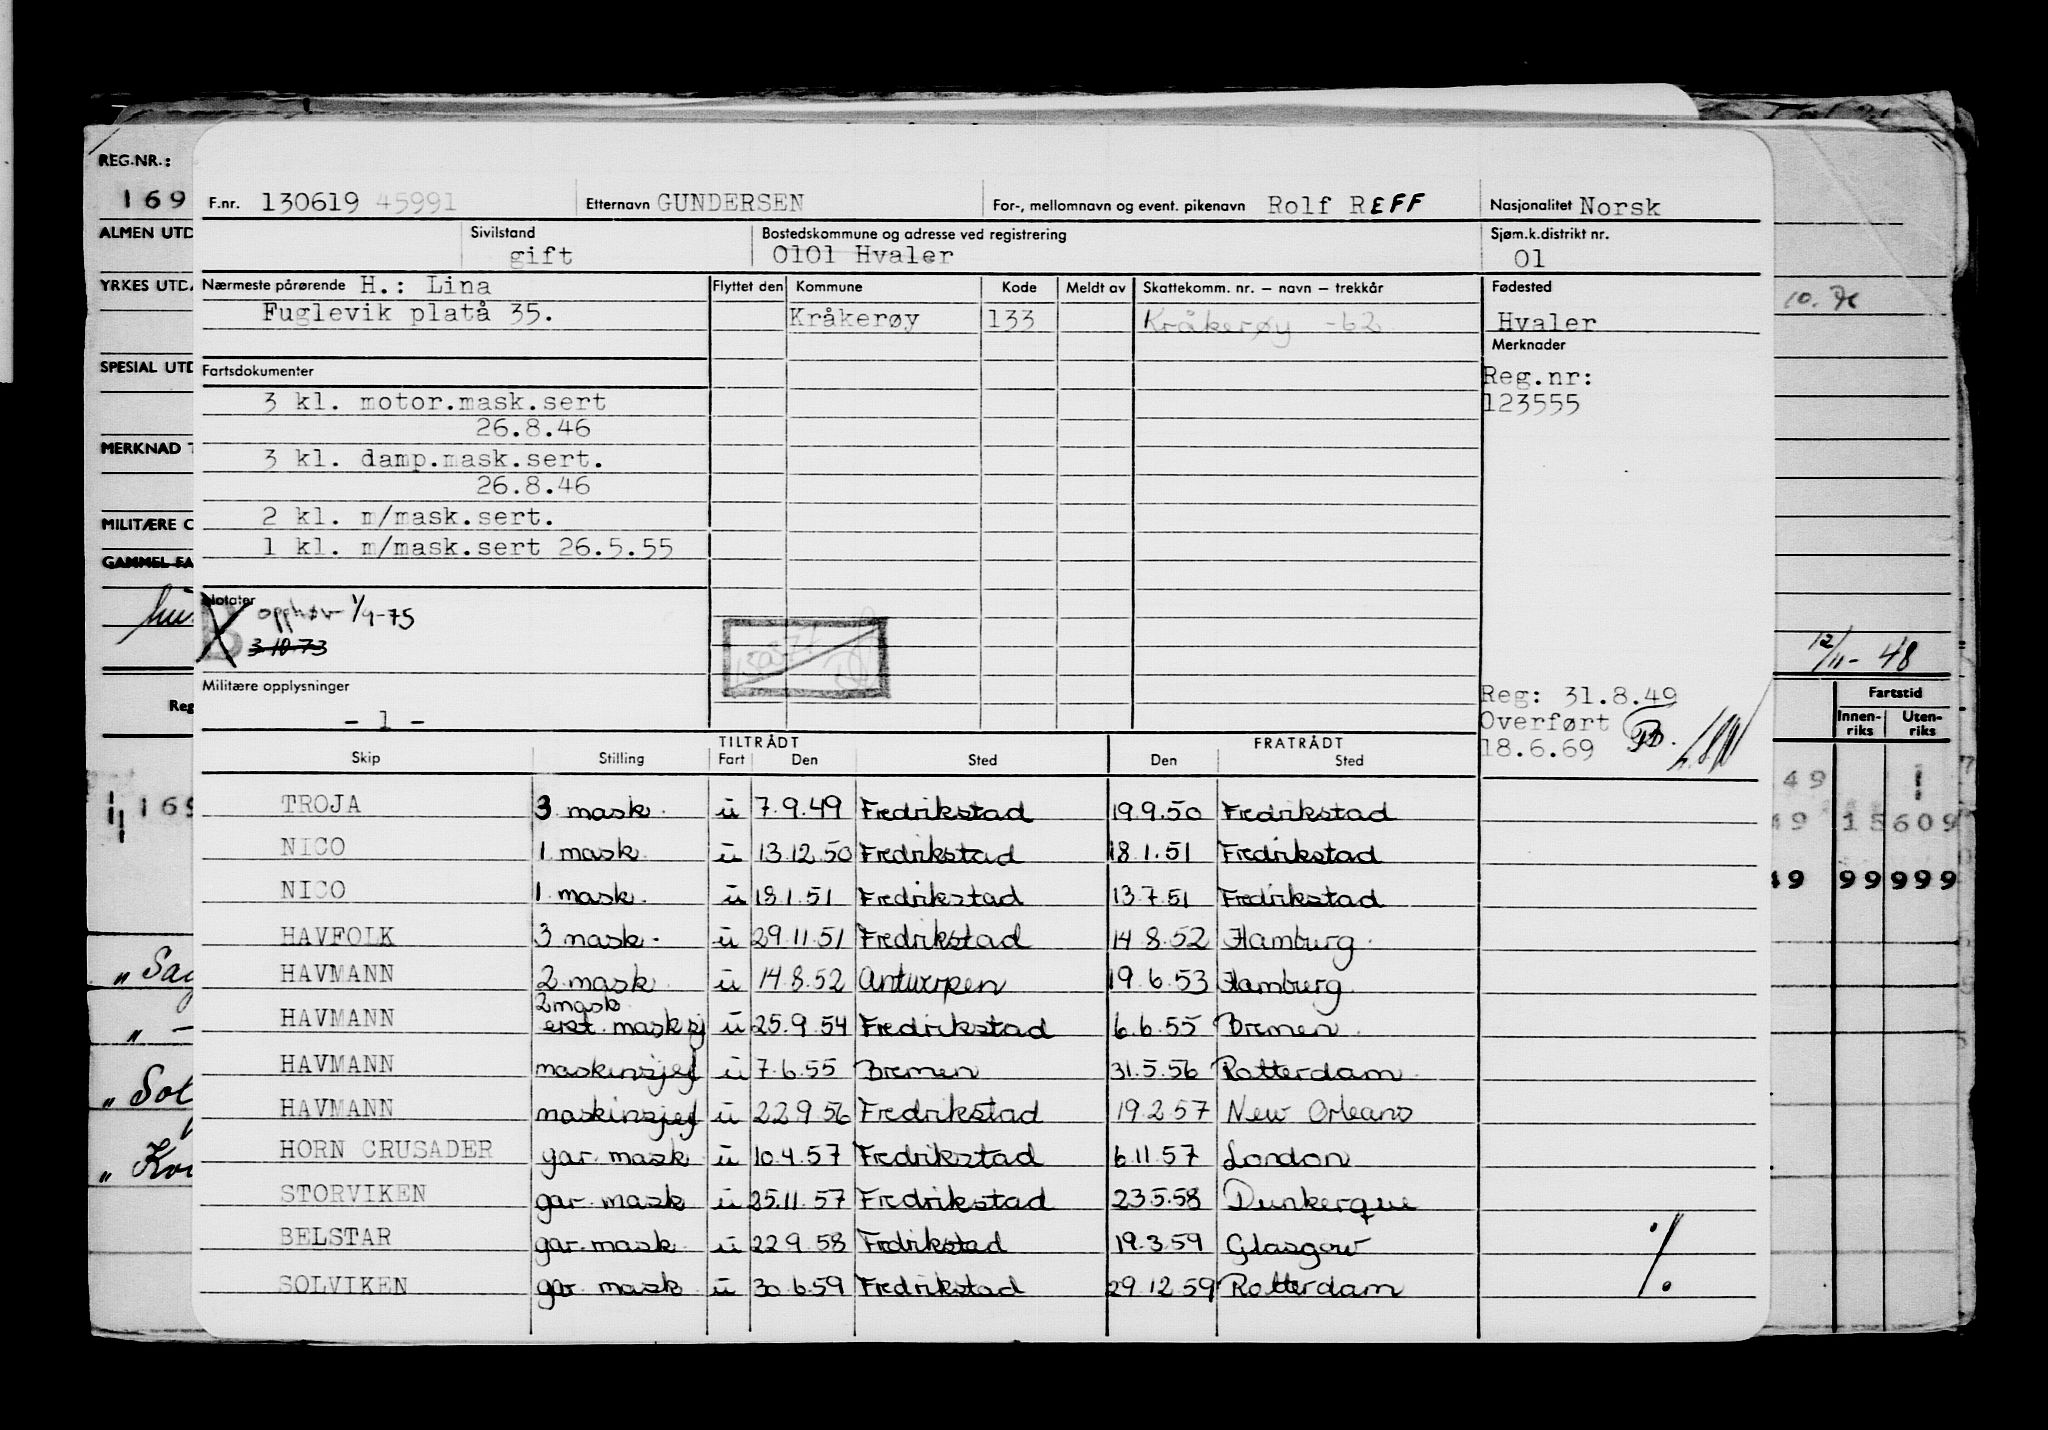 REG.NR.:
169
ALMEN UTD
YRKES UTDA
SPESIAL UTD
MERKNAD T
MILITÆRE O
GAMMEL FA
Reg
169
„ Sag
„ –
„ Sol
„ Kor
F.nr. 130619 45991 Etternavn GUNDERSEN For-, mellomnavn og event. pikenavn Rolf REFF Nasjonalitet Norsk
Sivilstand Bostedskommune og adresse ved registrering Sjøm.k.distrikt nr.
gift 0101 Hvaler 01
Nærmeste pårørende H.: Lina Flyttet den Kommune Kode Meldt av Skattekomm. nr. – navn – trekkår Fødested
Fuglevik platå 35. Kråkerøy 133 Kråkerøy -62 Hvaler
Merknader
Fartsdokumenter Reg.nr:
3 kl. motor.mask.sert 123555
26.8.46
3 kl. damp.mask.sert.
26.8.46
2 kl. m/mask.sert.
1 kl. m/mask.sert 26.5.55
Notater opphør 1/9-75
B 3-10-73
Militære opplysninger Reg: 31.8.49
- 1 - Overført
18.6.69
TILTRÅDT FRATRÅDT
Skip Stilling Fart Den Sted Den Sted
TROJA 3 mask. u 7.9.49 Fredrikstad 19.9.50 Fredrikstad
NICO 1 mask. u 13.12.50 Fredrikstad 18.1.51 Fredrikstad
NICO 1. mask. u 18.1.51 Fredrikstad 13.7.51 Fredrikstad
HAVFOLK 3 mask. u 29.11.51 Fredrikstad 14.8.52 Hamburg
HAVMANN 2. mask u 14.8.52 Antwerpen 19.6.53 Hamburg
2 mask
HAVMANN erst. masksj u 25.9.54 Fredrikstad 6.6.55 Bremen
HAVMANN maskinsjef u 7.6.55 Bremen 31.5.56 Rotterdam
HAVMANN maskinsjef u 22.9.56 Fredrikstad 19.2.57 New Orleans
HORN CRUSADER gar. mask u 10.4.57 Fredrikstad 6.11.57 London
STORVIKEN gar. mask u 25.11.57 Fredrikstad 23.5.58 Dunkerque
BELSTAR gar. mask u 22.9.58 Fredrikstad 19.3.59 Glasgow
SOLVIKEN gar. mask u 30.6.59 Fredrikstad 29.12.59 Rotterdam
./.
12/11-48
Fartstid
Innen-riks Uten-riks
49
49 15609
49 99999